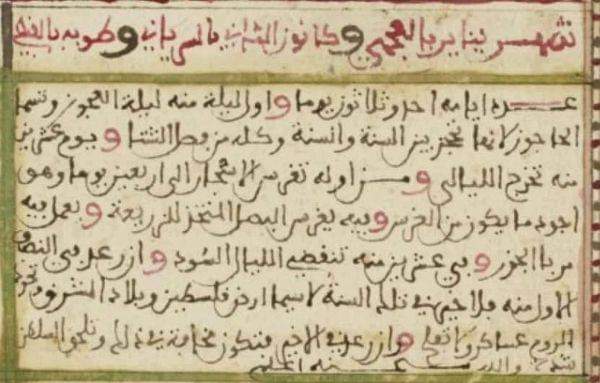 شهر ينير بالعجمي وكانون الثاني بالسرياني وطوبه بالقبطي
عدد ايامه احد وثلاثون يوما واول ليلة منه ليلة العجوز وتسما
الحاجوز لانها تحجز بين السنة والسنة وكله من فصل الشتا ويوم عشرين
منه تخرج الليالي ومن اوله تغرس الاشجار الى اربعين يوما وهو
اجود ما يكون من الغرس وفيه يغرس البصل المتخذ للزريعة ويعمل فيه
مربا الجوز وفي عشرين منه تنقضي الليال السود وان رعد في النصف
الاول منه فلا خير في تلك السنة لا سيما ارض فلسطين وبلاد
الروم عساكر وان رعد في الاخير فتكون مخافة في ذلك وتلحق
والله اعلم